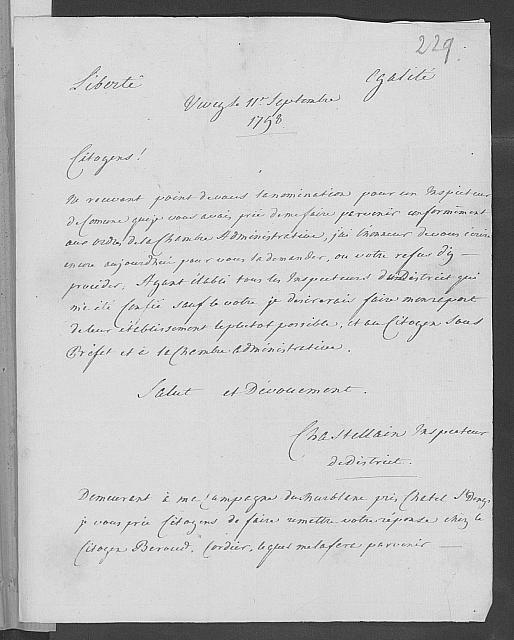 229
Liberté Egalité
Vevey le 11e Septembre
1798
Citoyens!
Ne recevant point de vous la nomination pour un Inspecteur
de Comune que je vous avais prié de me faire parvenir conformément
aux ordres de la Chambre Administrative, j'ai l'honneur de vous écrire
encore aujourd'hui pour vous la demander, ou votre refus d'y
procéder, Ayant établi tous les Inspecteurs du District qui
m'a été Confié sauf le votre je désirerais faire mon report
de leur établissement le plutot possible, et au Citoyen Sous
Préfet et à la Chambre administrative.
Salut et Dévouement.
Chastellain Inspecteur
de District.
Demeurant à ma Campagne du près Chatel St Denys
je vous prie Citoyens de faire remettre votre réponse chez le
Citoyen Beraud. Cordier, lequel me la fera parvenir